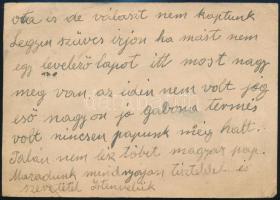 óta is de választ nem kaptunk
Legyen szüves irjon ha mást nem
egy levelező lapot itt most nagy
meg van az idén nem volt jég
eső nagyon jó gabona termés
volt nincsen papunk még halt.
Talán nem lisz többet magyar pap.
Maradunk mindnyájan tisztelettel és
szeretettel Istenvelük